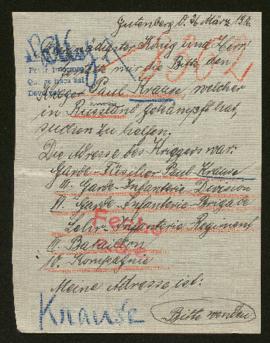 Gutenberg d. 26. März 192
König und Herr
mir die Bitte den
Krieger Paul Krause, welcher
in Russland gekämpft hat,
suchen zu helfen.
Die Adresse des Kriegers war:
Garde-Füsilier Paul Krause
III. Garde-Infanterie Division
VI. Garde-Infanterie-Brigade
Lehr-Infanterie-Regiment
III. Bataillon
10. Kompagnie
Meine Adresse ist:
Krause
Bitte wenden